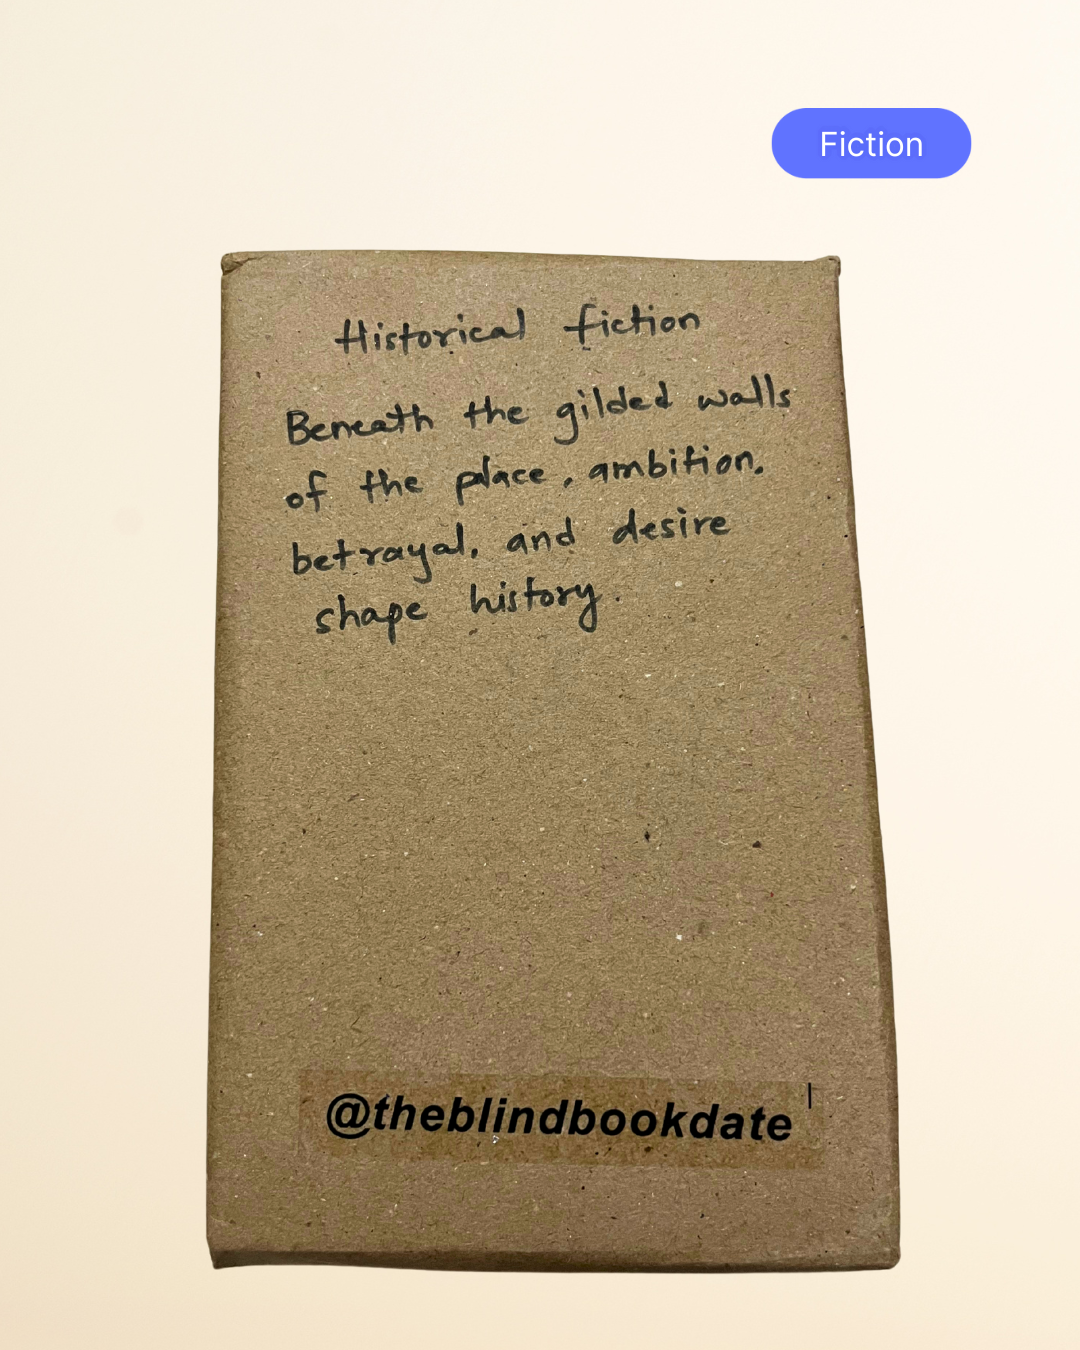 Fiction
Historical fiction
Beneath the gilded walls
of the place, ambition,
betrayal, and desire
shape history.
@theblindbookdate